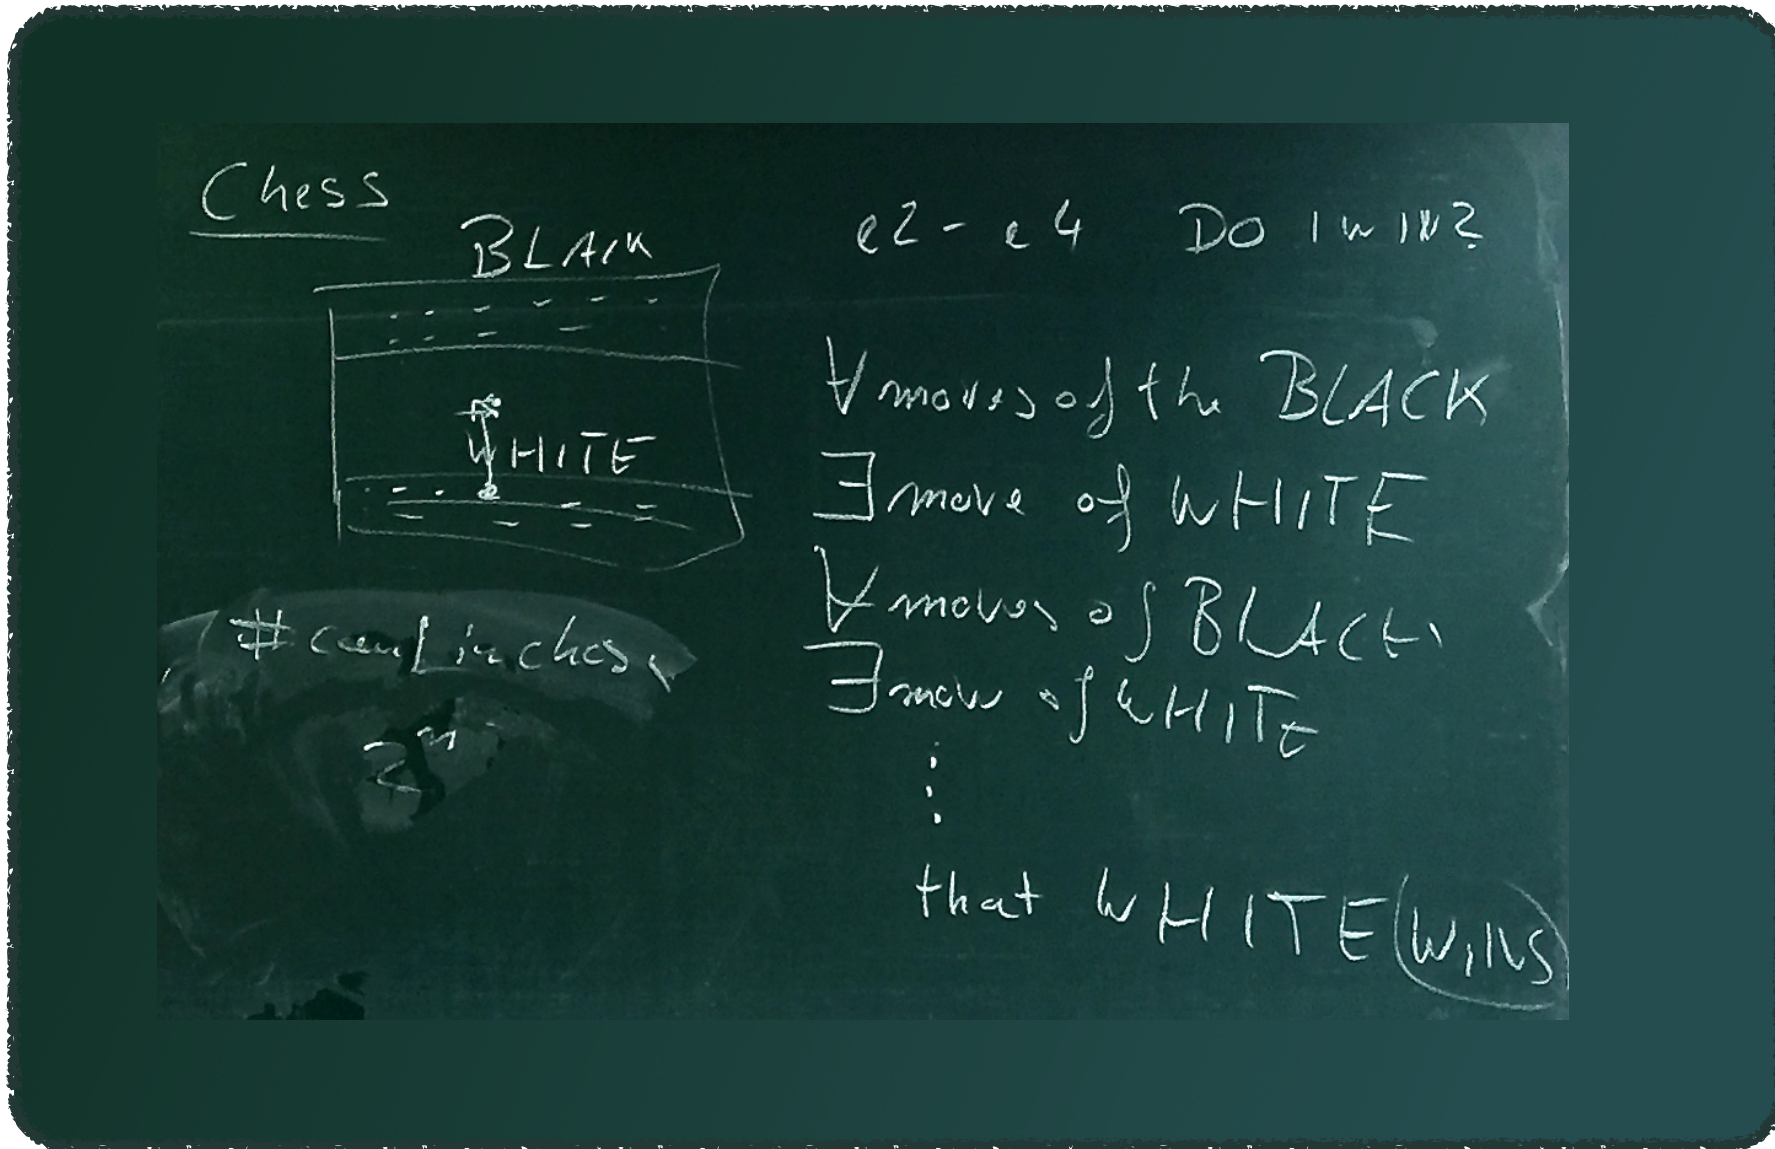 Chess
BLACK
WHITE
# conf in chess
2^n
e2 - e4 DO I WIN?
∀ moves of the BLACK
∃ move of WHITE
∀ moves of BLACK
∃ move of WHITE
⋮
that WHITE WINS